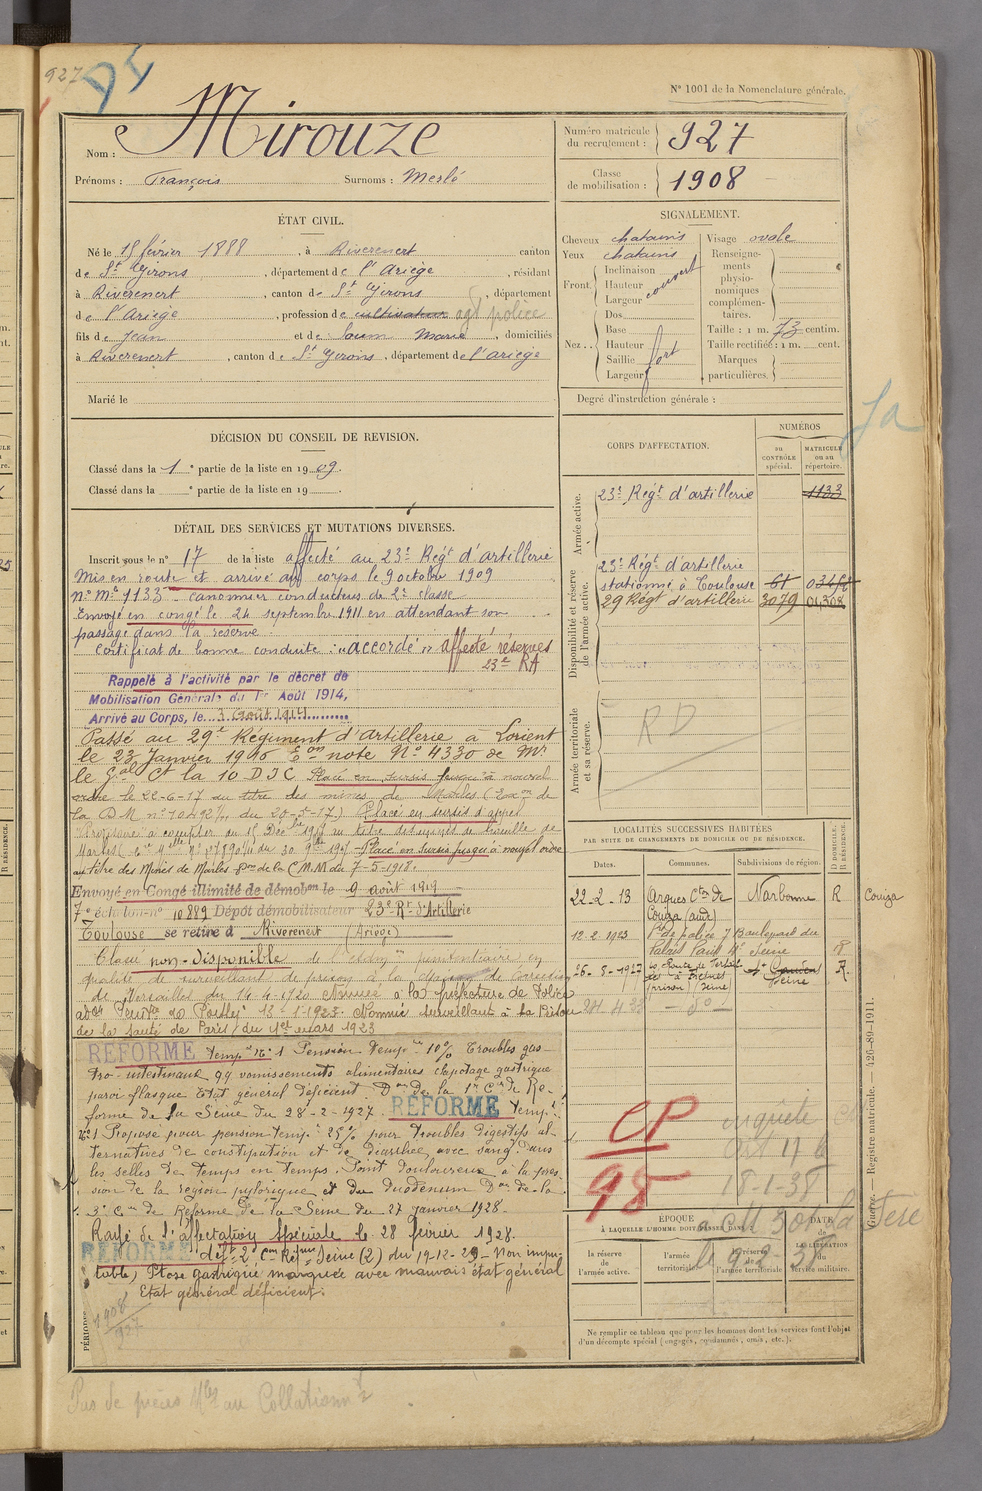 927
N° 1001 de la Nomenclature générale.
Nom : Mirouze
Prénoms : François Surnoms : Merlé
Numéro matricule du recrutement : 927
Classe de mobilisation : 1908
ÉTAT CIVIL.
Né le 15 février 1888, à Riverenert canton
de St Girons, département de l'Ariège, résidant
à Riverenert, canton de St Girons, département
de l'Ariège, profession de cultivateur agt police
fils de Jean et de Soum Marie, domiciliés
à Riverenert, canton de St Girons, département de l'Ariège
Marié le
SIGNALEMENT.
Cheveux chatains
Yeux chatains
Front. Inclinaison Hauteur Largeur couvert
Nez.. Dos Base Hauteur Saillie Largeur fort
Visage ovale
Renseignements physionomiques complémentaires.
Taille : 1 m. 73 centim.
Taille rectifiée : 1 m. cent.
Marques particulières.
Degré d'instruction générale :
DÉCISION DU CONSEIL DE REVISION.
Classé dans la 1e partie de la liste en 1909.
Classé dans la e partie de la liste en 19 .
CORPS D'AFFECTATION.
NUMÉROS
au CONTRÔLE spécial.
MATRICULE ou au répertoire.
Armée active.
23e Régt d'artillerie 1133
Disponibilité et réserve de l'armée active.
23e Régt d'artillerie
stationné à Toulouse 61
29 Régt d'artillerie 3079
Armée territoriale et sa réserve.
RD
DÉTAIL DES SERVICES ET MUTATIONS DIVERSES.
Inscrit sous le n° 17 de la liste affecté au 23e Régt d'artillerie
Mis en route et arrivé au corps le 9 octobre 1909
n° Mle 1133 canonnier conducteur de 2e classe
Envoyé en congé le 24 septembre 1911 en attendant son
passage dans la réserve.
Certificat de bonne conduite : "accordé" affecté réserves
23e RA
Rappelé à l'activité par le décret de
Mobilisation Générale du 1er Août 1914,
Arrivé au Corps, le 3 Août 1914
Passé au 29e Régiment d'artillerie à Lorient
le 23 Janvier 1916 Eon note N° 4330 de Mr
le Gal Ct la 10 DIC Placé en sursis jusqu'à nouvel
ordre le 22-6-17 au titre des mines de Marles (Exon de
la DM n° 10492/ du 20-5-17.) Placé en sursis d'appel
Placé en sursis jusqu'à nouvel ordre
au titre des Mines de Marles Don de la C.M.M du 7-5-1918.
Envoyé en Congé illimité de démobon le 9 avril 1919
7e échelon n° 10889 Dépôt démobilisateur 23e Rt d'Artillerie
Toulouse se retire à Riverenert (Ariège)
Classé non-Disponible de l'admon pénitentiaire en
qualité de surveillant de prison à la maison de Correction
de Versailles du 14-4-1920 Nommé à la préfecture de Police
13-1-1923. Nommé surveillant à la Prison
de la Santé de Paris, du 1er mars 1923
REFORMÉ tempre n° 1 Pension temp. 10% Troubles gas-
tro-intestinaux qq vomissements alimentaires clapotage gastrique
paroi flasque Etat général déficient. Don de la 1re Con de Ré-
forme de la Seine du 28-2-1927. REFORMÉ temp.
n° 1 Proposé pour pension temp. 25% pour troubles digestifs al-
ternatives de constipation et de diarrhée avec sang dans
les selles de temps en temps. Point douloureux à la pres-
sion de la région pylorique et du duodenum Don de la
3e Con de Réforme de la Seine du 27 janvier 1928.
Rayé de l'affectation spéciale le 28 février 1928.
REFORMÉ deft 2e Con Réfme Seine (2) du 19-12-29 - Non impu-
table, Ptose gastrique marquée avec mauvais état général
Etat général déficient.
PÉRIODES
1908
927
LOCALITÉS SUCCESSIVES HABITÉES
PAR SUITE DE CHANGEMENTS DE DOMICILE OU DE RÉSIDENCE.
Dates. Communes. Subdivisions de région. D DOMICILE. R RÉSIDENCE.
22-2-13 Arques Cton de Couiza (aude) Narbonne R Couiza
12-2-1923 Pre de police 7 Boulevard du Palais Paris 4e Seine R
26-5-1927 Fresnes (prison) (Seine) Seine R
CP
98
enquête
Art 17 b
18-1-38
à CM 501 la Fère
le 9-2-38
ÉPOQUE
À LAQUELLE L'HOMME DOIT PASSER DANS :
la réserve de l'armée active.
l'armée territoriale.
la réserve de l'armée territoriale.
DATE de LA LIBÉRATION du service militaire.
Ne remplir ce tableau que pour les hommes dont les services font l'objet
d'un décompte spécial (engagés, condamnés, omis, etc.).
Guerre. — Registre matricule. — 426-89-1911.
Pas de pièces Mles au Collationnt